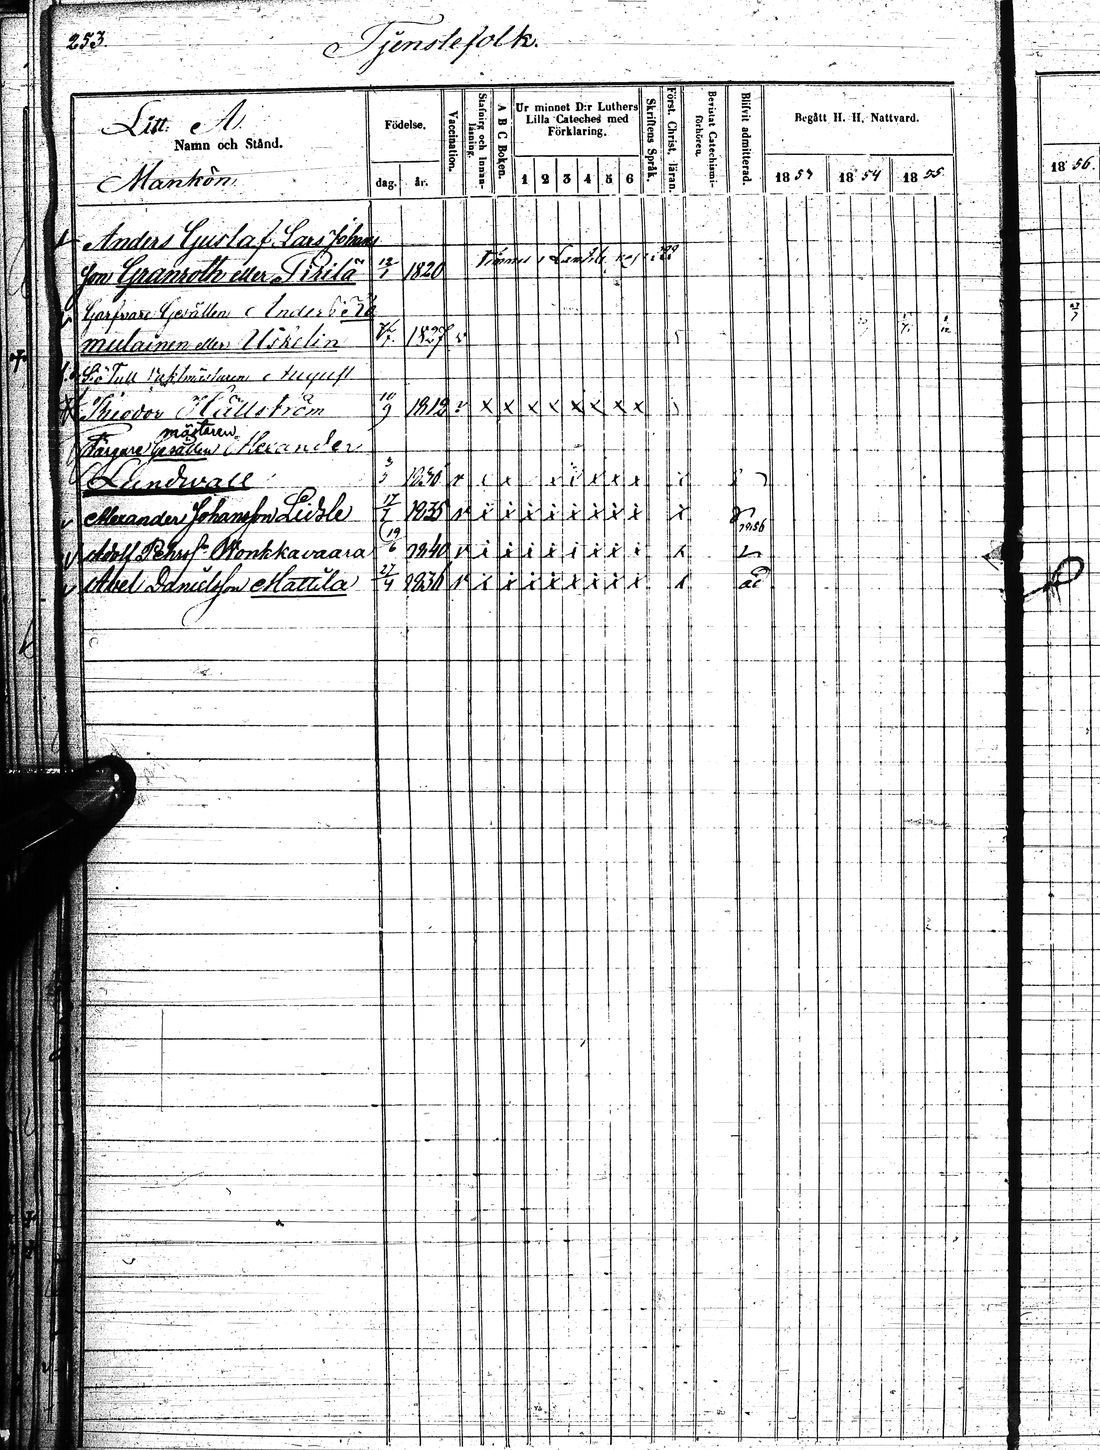 253.
Tjenstefolk.
Litt: A.
Namn och Stånd.
Mankön
Födelse.
dag. år.
Vaccination.
Stafning och Innan-läsning.
A B C Boken.
Ur minnet D:r Luthers
Lilla Cateches med
Förklaring.
1 2 3 4 5 6
Skriftens Språk.
Först. Christ. läran.
Bevistat Catechismi-förhören.
Blifvit admitterad.
Begått H. H. Nattvard.
1853 1854 1855
1856.
Anders Gustaf Lars Johans
son Granroth eller Pirilä 12/1 1820
Garfvare Gesällen Anders
mulainen eller Uskelin 1827 v
August
Theodor Hällström 10/9 1812 v x x x x x x x x
mästaren
Färgare Gesällen Alexander
Lundwall 3/5 1830
Alexander Johansson Lidsle 17/2 1835 v x x x x x x x x x 1856
Adolf Pehrs: Wonkkavaara 19/6 1840 v
Abel Danielsson Mattila 27/4 1836 v x x x x x x x x x ad